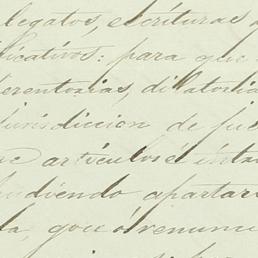 legatos, escrituras
licativos: para que
erentorias, dilatoria
jurisdiccion de jue
articulos é intra
udiendo apartar
la, que ó renunci